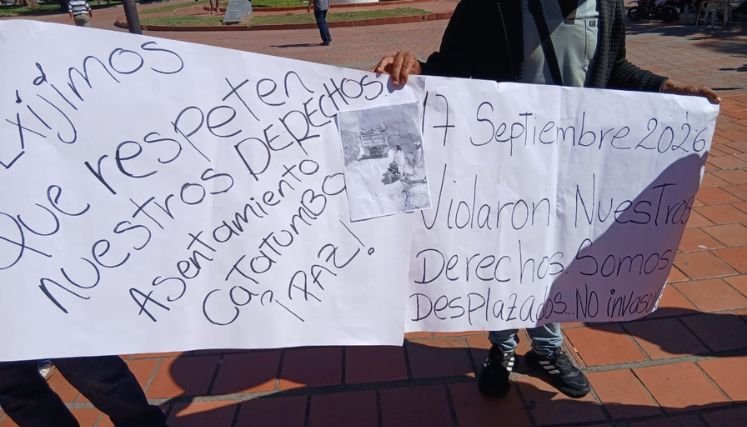 Exijimos
que respeten
nuestros DERECHOS
Asentamiento
CATATUMBO
¡PAZ!
17 Septiembre 2026
Violaron Nuestros
Derechos. Somos
Desplazados...NO invasores